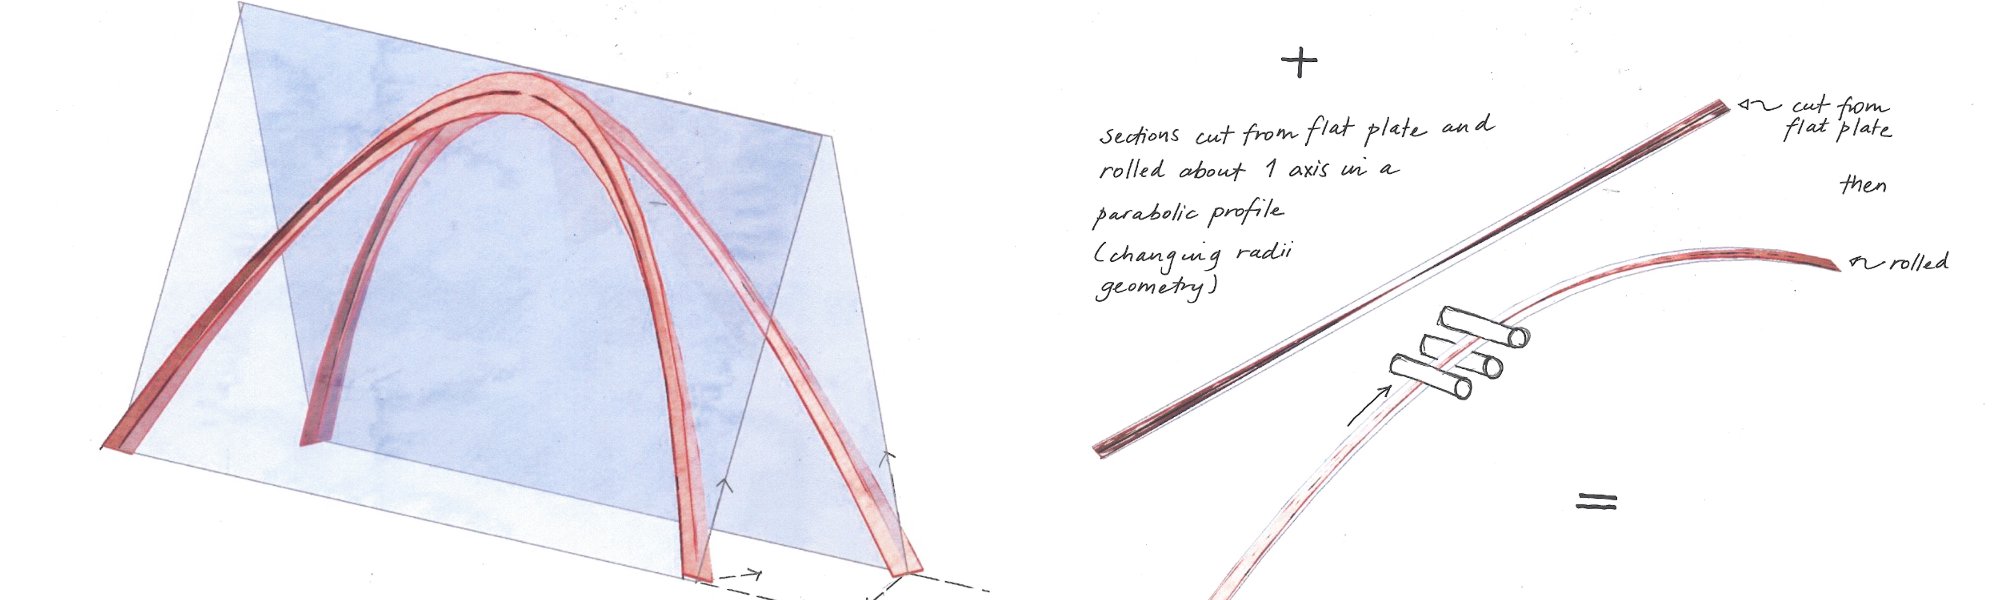 +
sections cut from flat plate and
rolled about 1 axis in a
parabolic profile
(changing radii
geometry)
cut from
flat plate
then
rolled
=